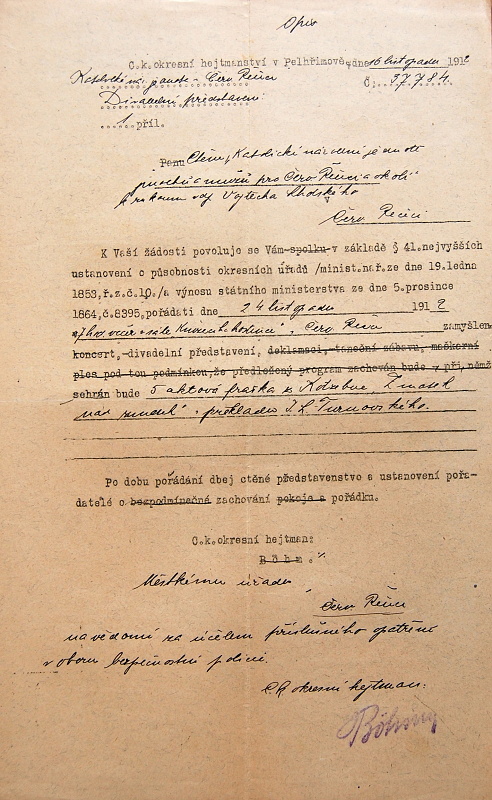 Opis
C.k.okresní hejtmanství v Pelhřimově,dne 16 listopadu 1912
Katol. nár. jednota - Červ Řečice Č. 37.784.
Divadelní představení
1 příl.
Panu Ctěné Katolické národní jednotě
jinochů a mužů pro Červ. Řečici a okolí
k rukoum Vojtěcha
Červ Řečici
K Vaší žádosti povoluje se Vám spolku v základě § 41.nejvyšších
ustanovení o působnosti okresních úřadů /minist.nař.ze dne 19.ledna
1853,ř.z.č.10./a výnosu státního ministerstva ze dne 5.prosince
1864,č.8395,pořádati dne 24 listopadu 1912
v 7 hod. večer v sále hostince v Červ Řečici zamýšlen
koncert,-divadelní představení, deklamaci,-taneční zábavu,-maškarní
ples pod tou podmínkou,že předložený program zachován bude v při,němž
sehrán bude 5 aktová fraška z Kotzebue, Zmatek
nad zmatek v překladu J. L. Turnovského.
Po dobu pořádání dbej ctěné představenstvo a ustanovení pořa-
datelé o bezpodmínečná zachování pokoje a pořádku.
C.k.okresní hejtman:
Böhm.
Městkému úřadu
Červ Řečici
na vědomí za účelem příslušného opatření
v oboru bezpečnostní policie.
C. k. okresní hejtman:
Böhm